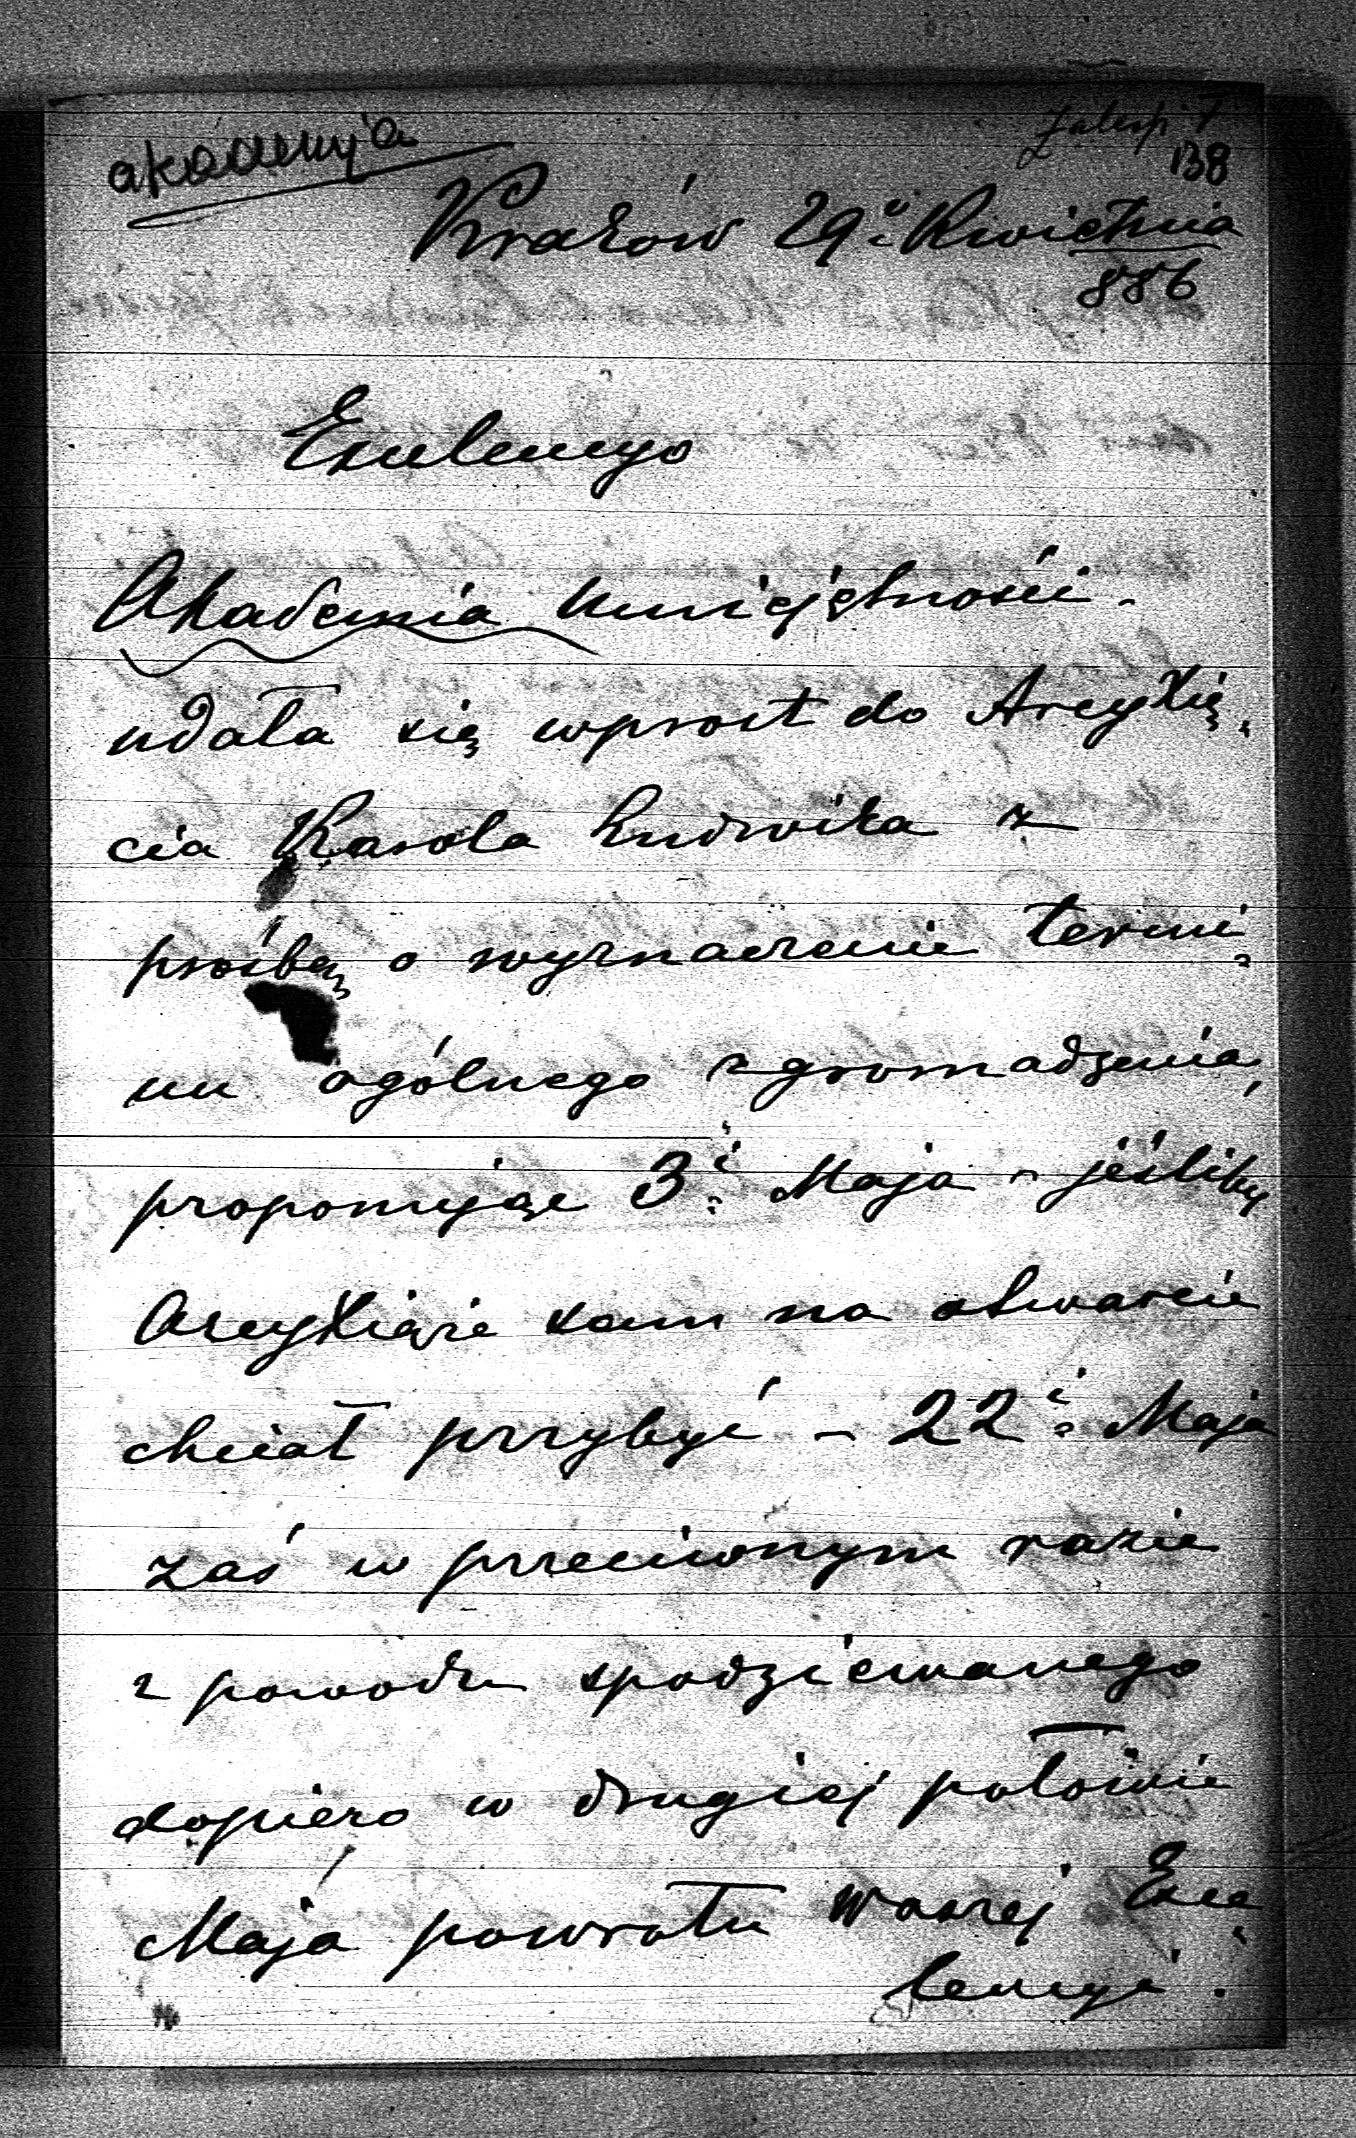 akademja
138
Kraków 29.º Kwietnia
886
Exulencyo
Akademia Umiejętności
udała się wprost do Arcyxię-
cia Karola Ludwika z
prośbą o wyznaczenie termi-
nu ogólnego zgromadzenia,
proponując 3.i Maja - jeśliby
Arcyxiąże sam na otwarcie
chciał przybyć - 22.i Maja
zaś w przeciwnym razie
z powodu spodziewanego
dopiero w drugiej połowie
Maja powrotu Waszej Exce-
lencyi.